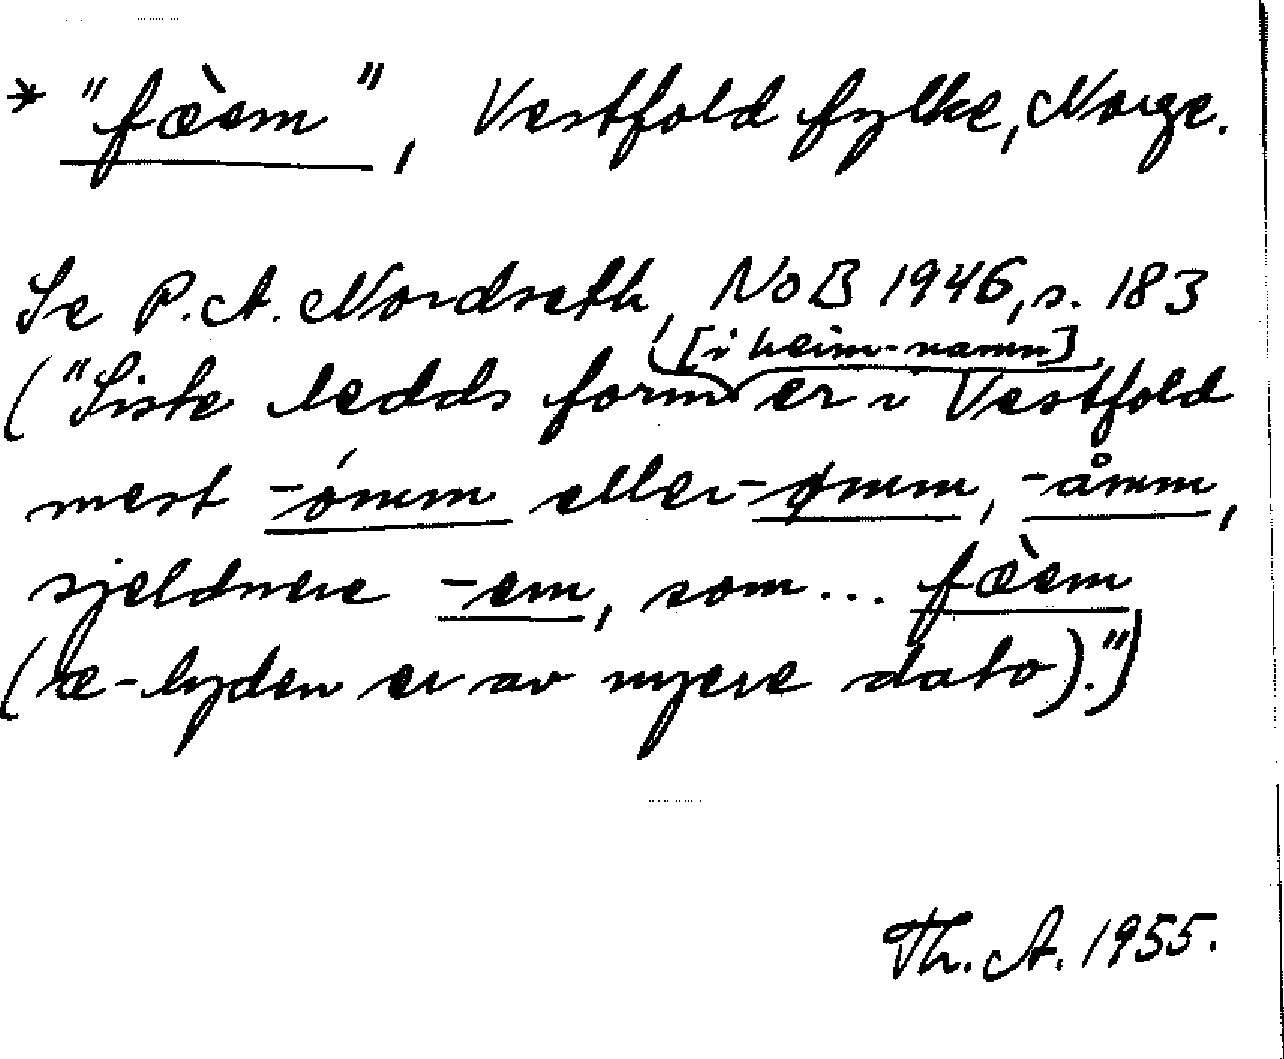 * "fæ̀em", Vestfold fylke, Norge.
Se P.A. Nordseth, NoB 1946, s. 183
[i heim-namn]
("Siste ledds form er i Vestfold
mest -ómm eller -ømm, -åmm,
sjeldnere -em, som... fæ̀em
(æ-lyden er av nyere dato).")
Th. A. 1955.